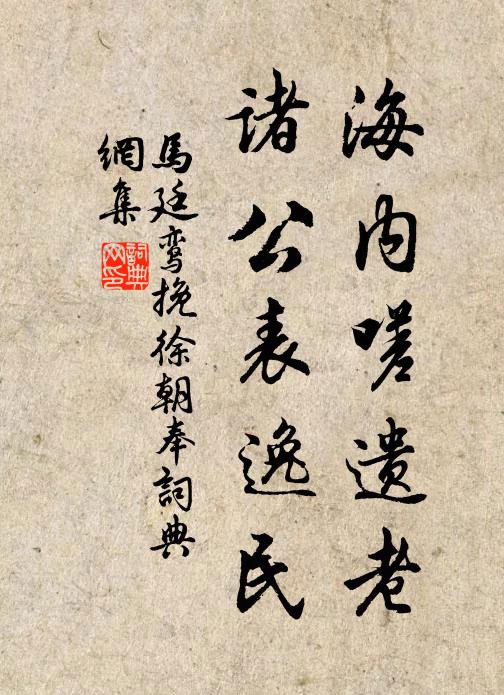 海内嗟遗老
诸公表逸民
馬廷鸾挽徐朝奉詞典
網集
詞典
网印